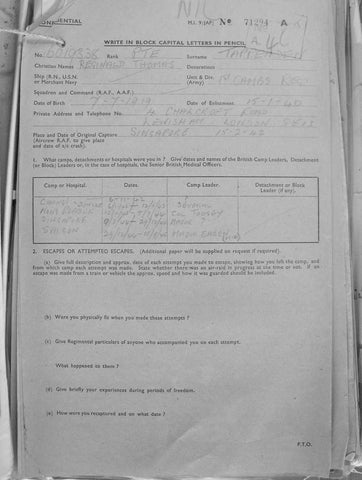 CONFIDENTIAL
NIL
M.I. 9/JAP/ No 71294 A
WRITE IN BLOCK CAPITAL LETTERS IN PENCIL
No. Rank PTE Surname
Christian Names REGINALD THOMAS Decorations
Ship (R.N., U.S.N. or Merchant Navy Unit & Div. (Army) 1st CAMBS REGT
Squadron and Command (R.A.F., A.A.F.)
Date of Birth 7-7-1919 Date of Enlistment 15-1-40
Private Address and Telephone No. 4 CHARCROFT ROAD
LEWISHAM LONDON S.E.13
Place and Date of Original Capture SINGAPORE 15-2-42
(Aircrew R.A.F. to give place and date of a/c crash).
1. What camps, detachments or hospitals were you in? Give dates and names of the British Camp Leaders, Detachment (or Block) Leaders or, in the case of hospitals, the Senior British Medical Officers.
Camp or Hospital. Dates. Camp Leader. Detachment or Block Leader (if any).
CHANGI
SINGAPORE
SAIGON
2. ESCAPES OR ATTEMPTED ESCAPES. (Additional paper will be supplied on request if required).
(a) Give full description and approx. date of each attempt you made to escape, showing how you left the camp, and from which camp each attempt was made. State whether there was an air-raid in progress at the time or not. If an escape was made from a train or vehicle the approx. speed and how it was guarded should be included.
(b) Were you physically fit when you made these attempts?
(c) Give Regimental particulars of anyone who accompanied you on each attempt.
What happened to them?
(d) Give briefly your experiences during periods of freedom.
(e) How were you recaptured and on what date?
P.T.O.